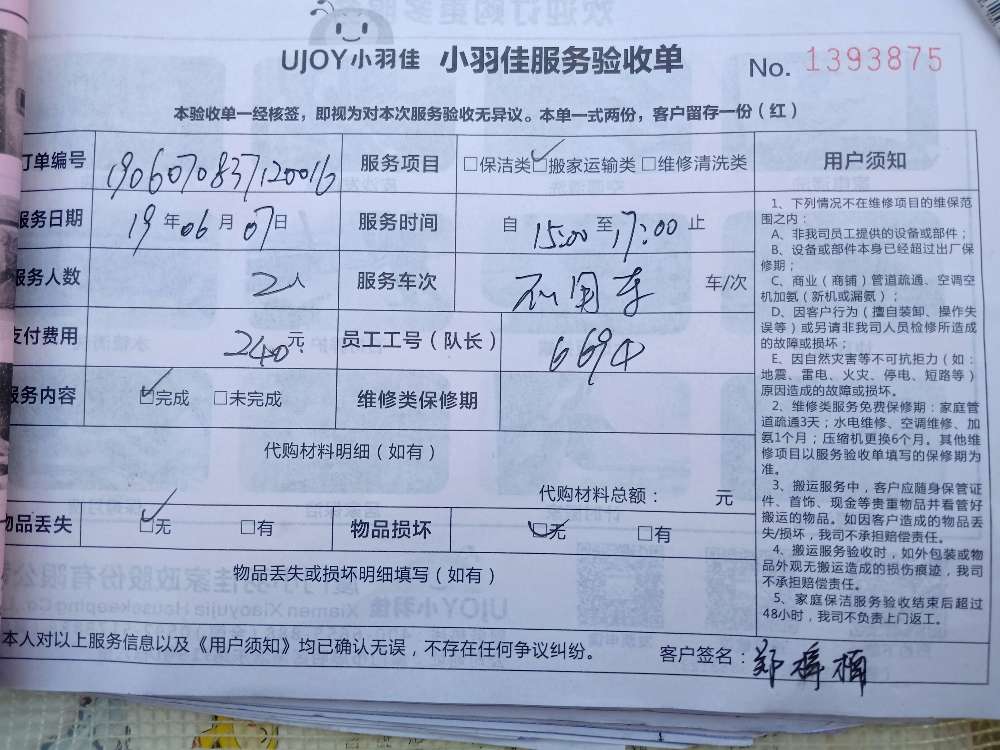 UJOY小羽佳 小羽佳服务验收单 No. 1393875
本验收单一经核签，即视为对本次服务验收无异议。本单一式两份，客户留存一份（红）
订单编号 190607083712001 6 服务项目 □保洁类 ☑搬家运输类 □维修清洗类 用户须知
服务日期 19年06月07日 服务时间 自 15:00 至 17:00 止
服务人数 2人 服务车次 不用车 车/次
支付费用 240元 员工工号（队长） 6694
服务内容 ☑完成 □未完成 维修类保修期
代购材料明细（如有）
代购材料总额： 元
物品丢失 ☑无 □有 物品损坏 ☑无 □有
物品丢失或损坏明细填写（如有）
1、下列情况不在维修项目的维保范
围之内：
A、非我司员工提供的设备或部件；
B、设备或部件本身已经超过出厂保
修期；
C、商业（商铺）管道疏通、空调空
机加氨（新机或漏氨）；
D、因客户行为（擅自装卸、操作失
误等）或另请非我司人员检修所造成
的故障或损坏；
E、因自然灾害等不可抗拒力（如：
地震、雷电、火灾、停电、短路等）
原因造成的故障或损坏。
2、维修类服务免费保修期：家庭管
道疏通3天；水电维修、空调维修、加
氨1个月；压缩机更换6个月。其他维
修项目以服务验收单填写的保修期为
准。
3、搬运服务中，客户应随身保管证
件、首饰、现金等贵重物品并看管好
搬运的物品。如因客户造成的物品丢
失/损坏，我司不承担赔偿责任。
4、搬运服务验收时，如外包装或物
品外观无搬运造成的损伤痕迹，我司
不承担赔偿责任。
5、家庭保洁服务验收结束后超过
48小时，我司不负责上门返工。
本人对以上服务信息以及《用户须知》均已确认无误，不存在任何争议纠纷。 客户签名：郑梅楠